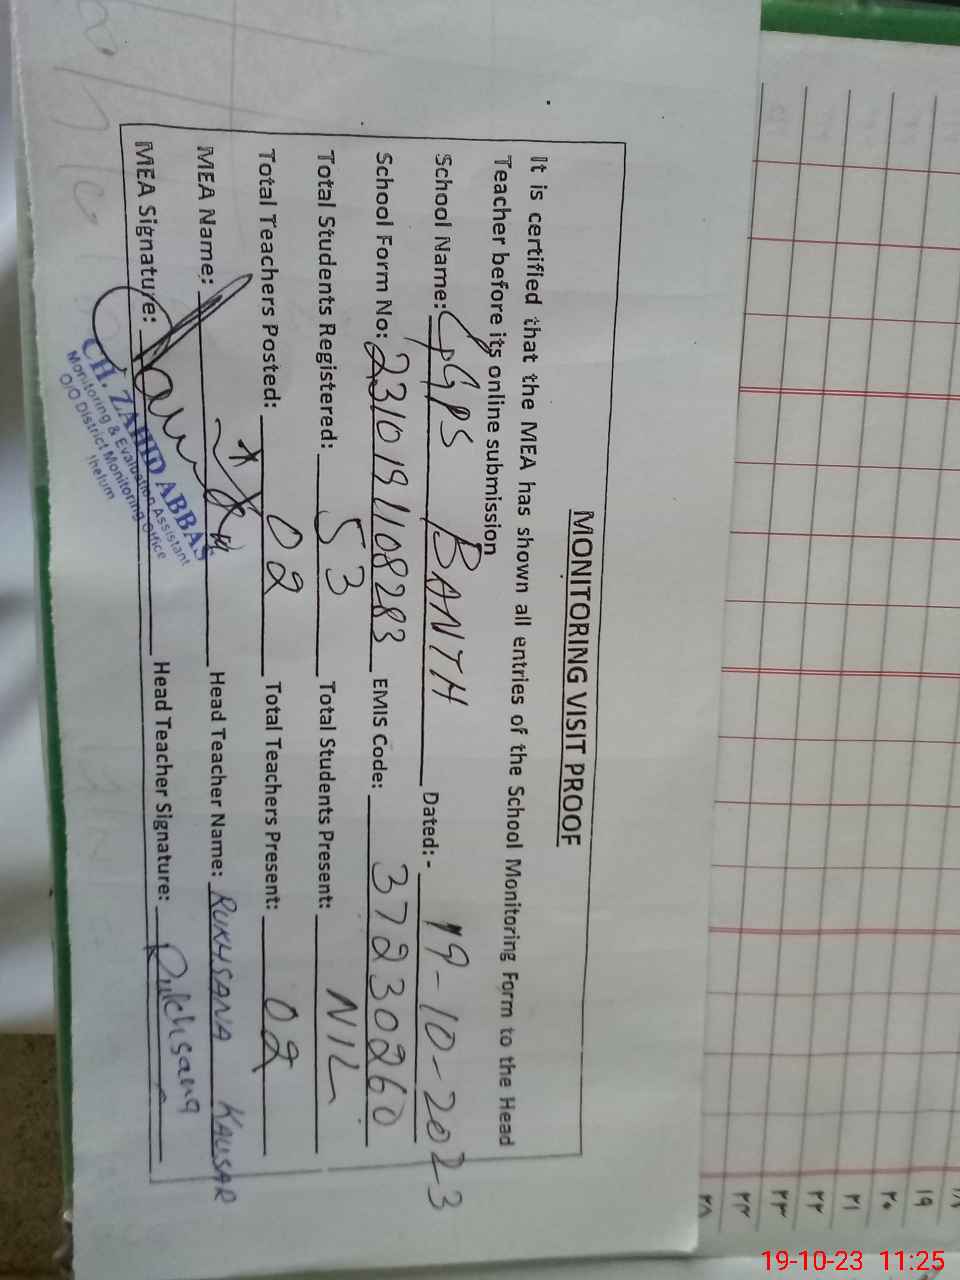 MONITORING VISIT PROOF
It is certified that the MEA has shown all entries of the School Monitoring Form to the Head
Teacher before its online submission
School Name: GGPS BANTH Dated:- 19-10-2023
School Form No: 2310191108283 EMIS Code: 37230260
Total Students Registered: 53 Total Students Present: NIL
Total Teachers Posted: 02 Total Teachers Present: 02
MEA Name: Head Teacher Name: RUKHSANA KAUSAR
MEA Signature: Head Teacher Signature: Rukhsana
CH. ZAHID ABBAS
Monitoring & Evaluation Assistant
O/O District Monitoring Office
Jhelum
۱۹
۲۰
۲۱
۲۲
۲۳
۲۴
۲۵
19-10-23 11:25